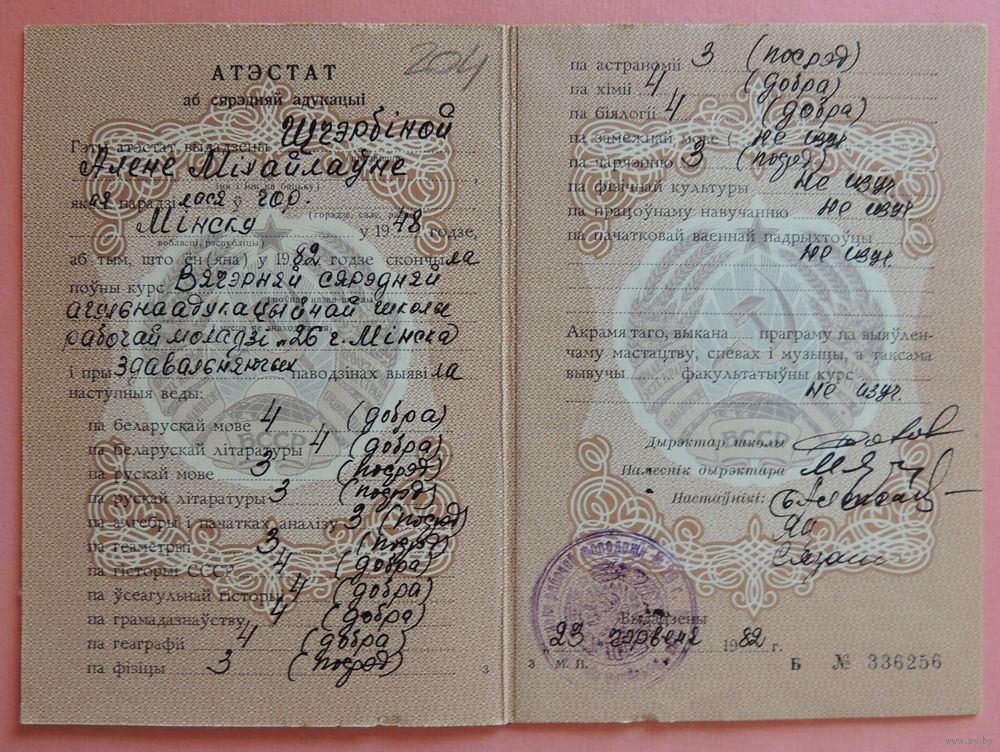 204
АТЭСТАТ
аб сярэдняй адукацыі
Гэты атэстат выдадзены Шчэрбіной
Алене Міхайлаўне
(імя і імя па бацьку)
якая нарадзілася ў гор.
Мінску
(горадзе, сяле, раёне,
у 1948 годзе,
вобласці, рэспубліцы)
аб тым, што ён (яна) у 1982 годзе скончыла
поўны курс Вячэрняй сярэдняй
(поўная назва школы
агульнаадукацыйнай школы
месца яе знаходжання
рабочай моладзі №26 г. Мінска
і пры здавальняючых паводзінах выявіла
наступныя веды:
па беларускай мове 4 (добра)
па беларускай літаратуры 4 (добра)
па рускай мове 3 (посрэд)
па рускай літаратуры 3 (посрэд)
па алгебры і пачатках аналізу 3 (посрэд)
па геаметрыі 3 (посрэд)
па гісторыі СССР 4 (добра)
па ўсеагульнай гісторыі 4 (добра)
па грамадазнаўству 4 (добра)
па геаграфіі 4 (добра)
па фізіцы 3 (посрэд)
з
БССР
па астраноміі 3 (посрэд)
па хіміі 4 (добра)
па біялогіі 4 (добра)
па замежнай мове ( не изуч
па чарчэнню 3 (посрэд)
па фізічнай культуры не изуч
па працоўнаму навучанню не изуч
па пачатковай ваеннай падрыхтоўцы
не изуч.
Акрамя таго, выкана..... праграму па выяўлен-
чаму мастацтву, спевах і музыцы, а таксама
вывучы ........ факультатыўны курс
не изуч.
БССР
Дырэктар школы
Намеснік дырэктара
Настаўнікі:
Выдадзены
23 чэрвеня 1982 г.
з М. П.
Б № 336256
www.ay.by